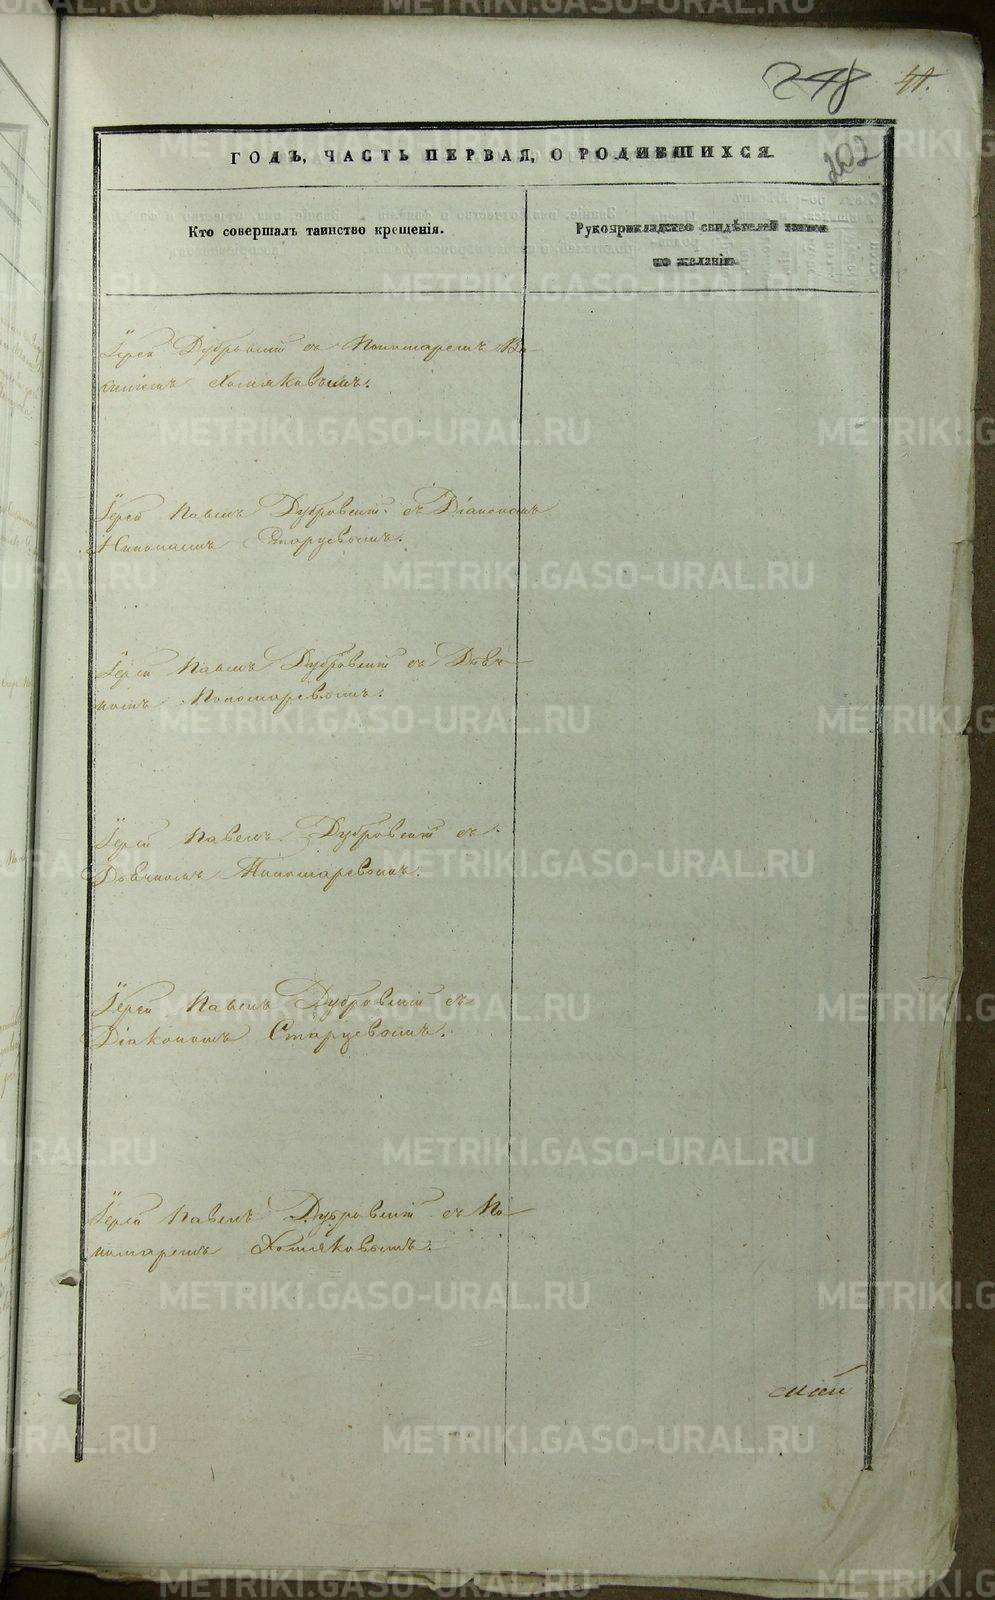 248 41.
202
ГОДЪ, ЧАСТЬ ПЕРВАЯ, О РОДИВШИХСЯ.
Кто совершалъ таинство крещенія.
Рукоприкладство свидѣтелей записи
по желанію.
Іерей Дубровскій съ Пономаремъ Ва-
силіемъ Хомяковымъ.
Іерей Павелъ Дубровскій съ Діакономъ
Старцевымъ.
Іерей Павелъ Дубровскій съ Дьяч-
комъ Пономаревымъ.
Іерей Павелъ Дубровскій съ
Дьячкомъ Пономаревымъ.
Іерей Павелъ Дубровскій съ
Діакономъ Старцевымъ.
Іерей Павелъ Дубровскій съ По-
номаремъ Хомяковымъ.
METRIKI.GASO-URAL.RU